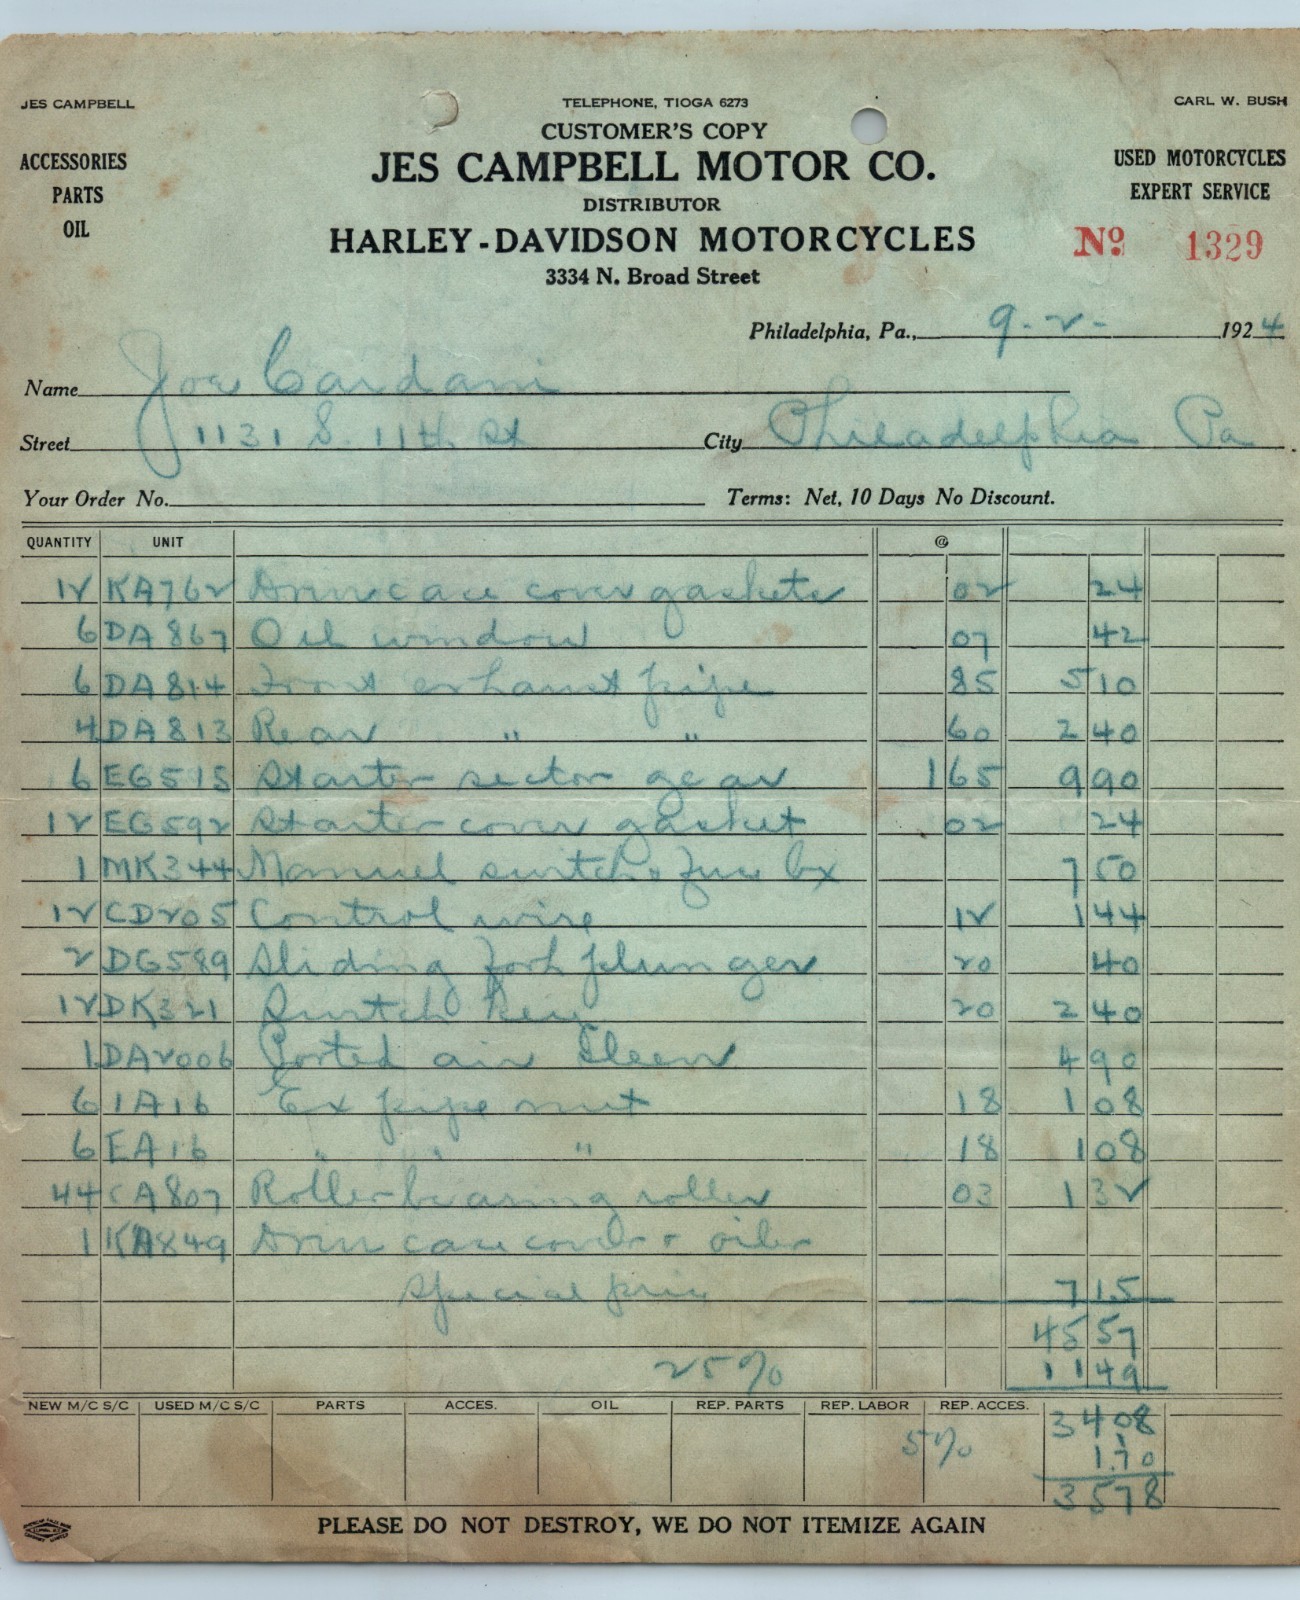 JES CAMPBELL
TELEPHONE, TIOGA 6273
CARL W. BUSH
CUSTOMER'S COPY
ACCESSORIES
PARTS
OIL
JES CAMPBELL MOTOR CO.
DISTRIBUTOR
HARLEY-DAVIDSON MOTORCYCLES
3334 N. Broad Street
USED MOTORCYCLES
EXPERT SERVICE
No 1329
Philadelphia, Pa., 9-2- 1924
Name Joe Cardani
Street 1131 S. 11th St City Philadelphia Pa
Your Order No. Terms: Net, 10 Days No Discount.
QUANTITY UNIT @
12 KA762 case cover gaskets 02 24
6 DA867 Oil window 07 42
6 DA814 Front exhaust pipe 85 510
4 DA813 Rear " " 60 240
6 EG515 Starter sector gear 165 990
12 EG592 Starter cover gasket 02 24
1 MK344 Manuel switch & fuse bx 750
12 CD205 Control wire 12 144
2 DG589 Sliding fork plunger 20 40
12 DK321 Switch key 20 240
1 DA2006 Ported air 490
6 1A16 Ex pipe nut 18 108
6 EA16 " " " 18 108
44 CA807 Roller bearing roller 03 132
1 KA849 case cover & oiler
Special price 715
4557
25% 1149
NEW M/C S/C USED M/C S/C PARTS ACCES. OIL REP. PARTS REP. LABOR REP. ACCES.
3408
5% 1.70
3578
PLEASE DO NOT DESTROY, WE DO NOT ITEMIZE AGAIN